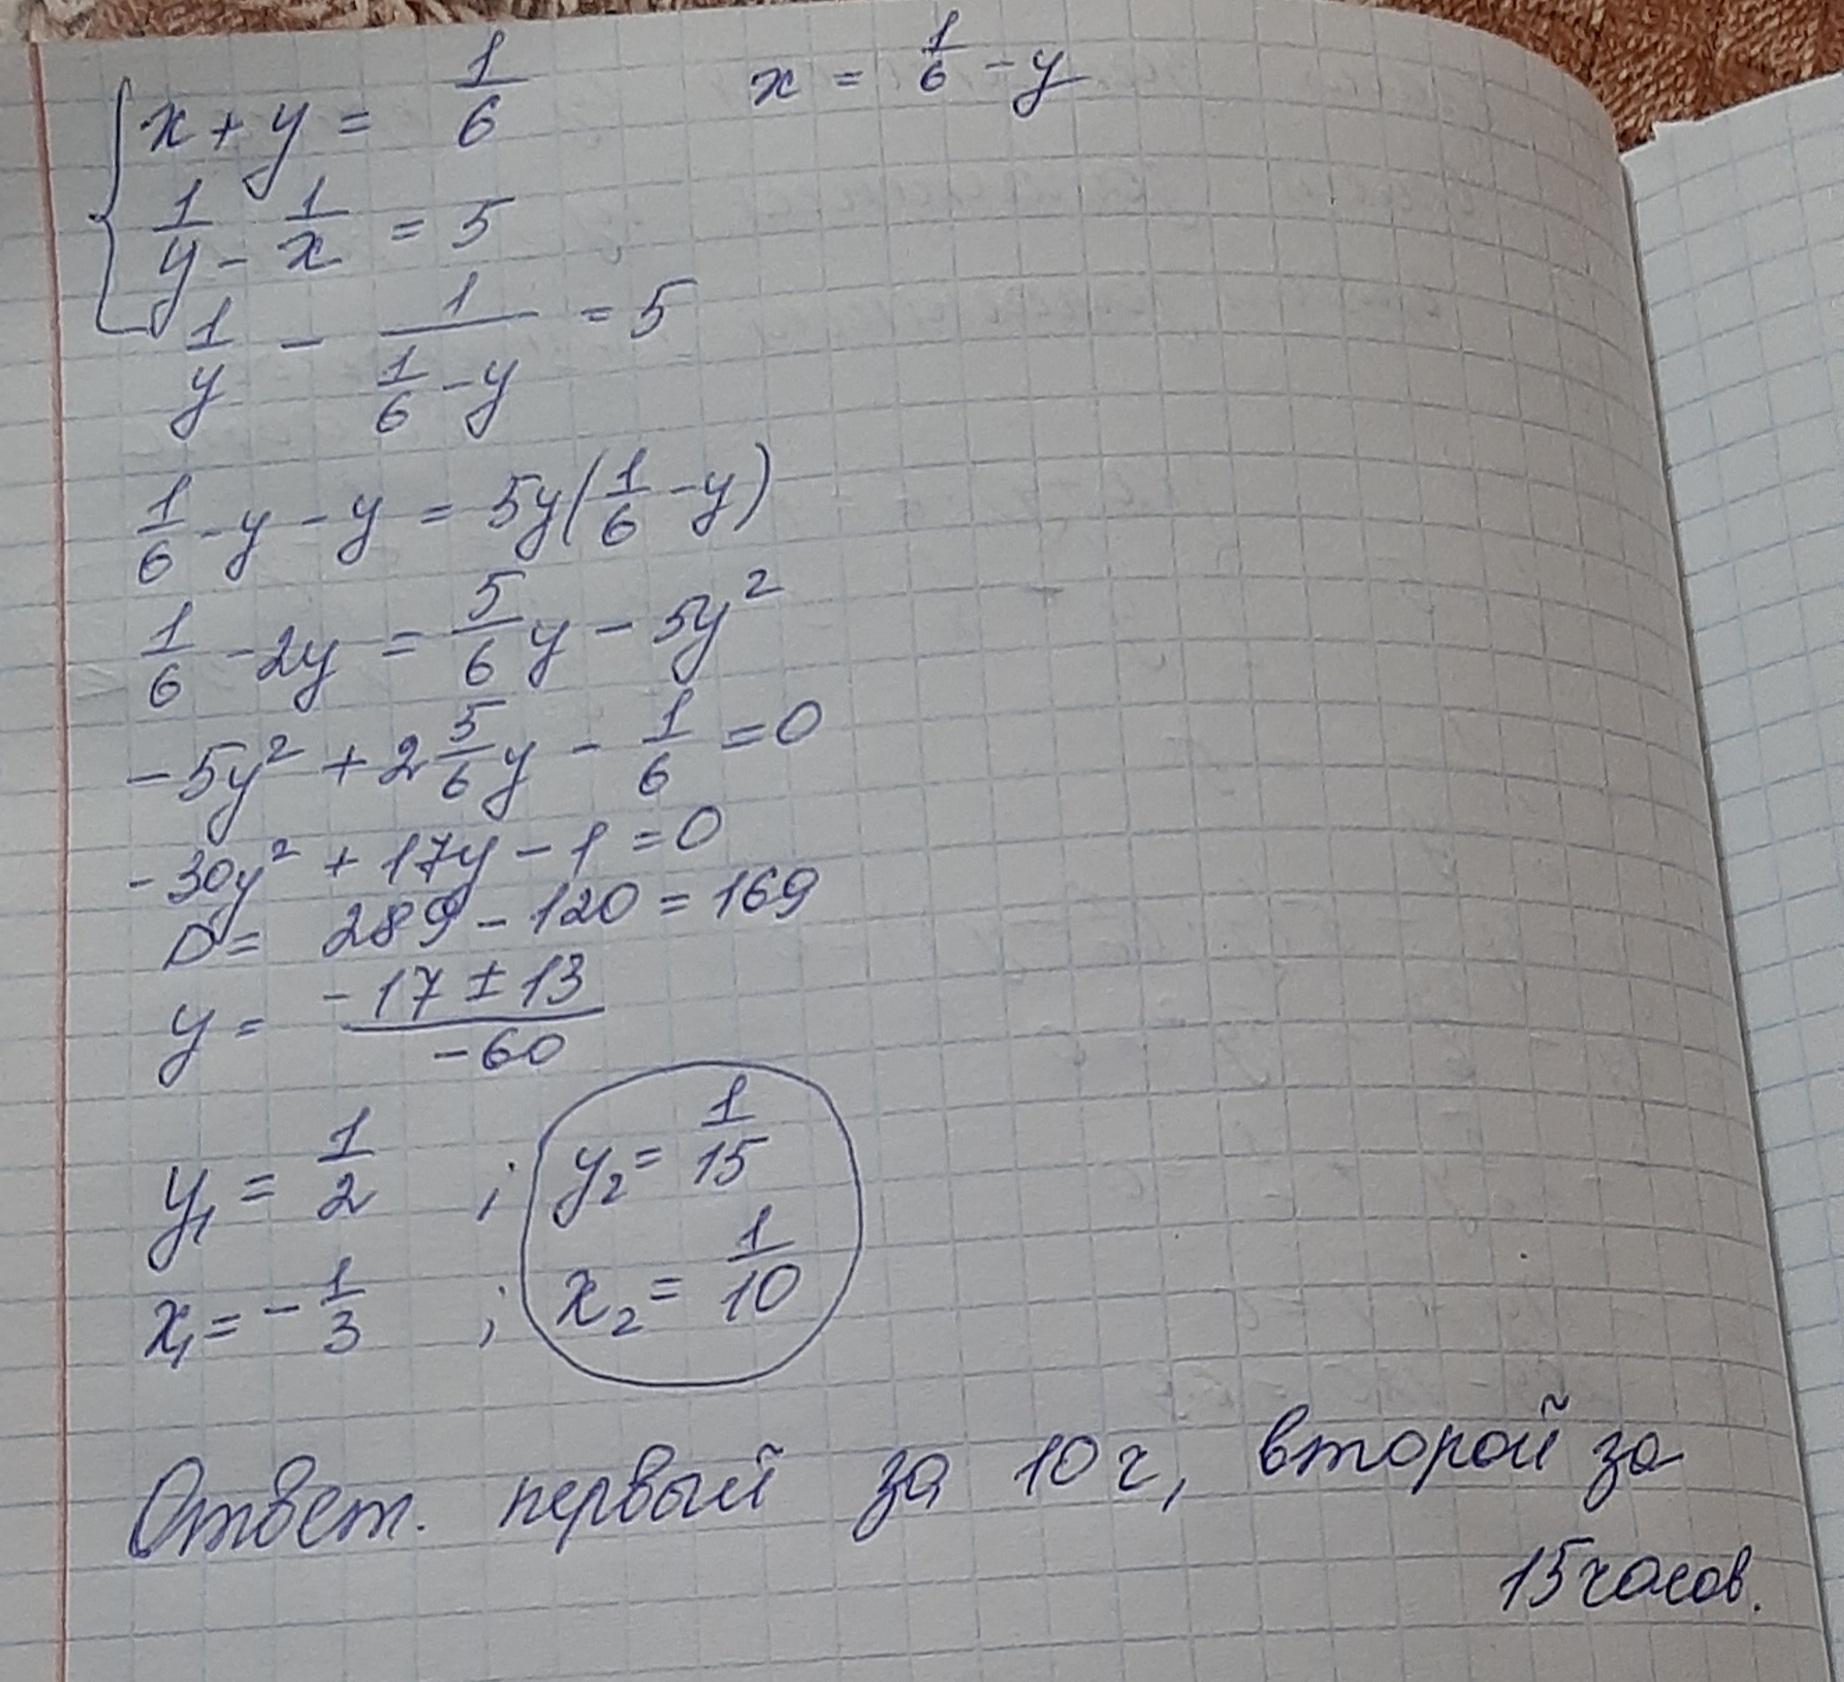 x + y = 1/6    x = 1/6 - y
1/y - 1/x = 5
1/y - 1/(1/6 - y) = 5
1/6 - y - y = 5y(1/6 - y)
1/6 - 2y = 5/6 y - 5y²
- 5y² + 2 5/6 y - 1/6 = 0
- 30y² + 17y - 1 = 0
D = 289 - 120 = 169
y = (- 17 ± 13)/(- 60)
y₁ = 1/2 ; y₂ = 1/15
x₁ = - 1/3 ; x₂ = 1/10
Ответ. первый за 10 ч, второй за
15 часов.